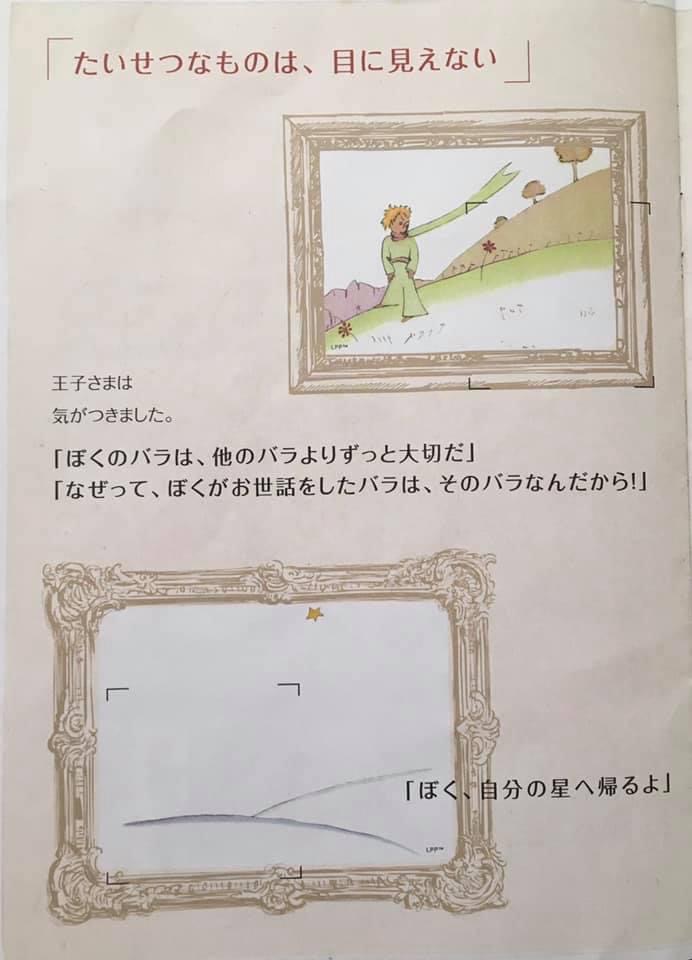 「たいせつなものは、目に見えない」
LPP™
王子さまは
気がつきました。
「ぼくのバラは、他のバラよりずっと大切だ」
「なぜって、ぼくがお世話をしたバラは、そのバラなんだから!」
「ぼく、自分の星へ帰るよ」
LPP™